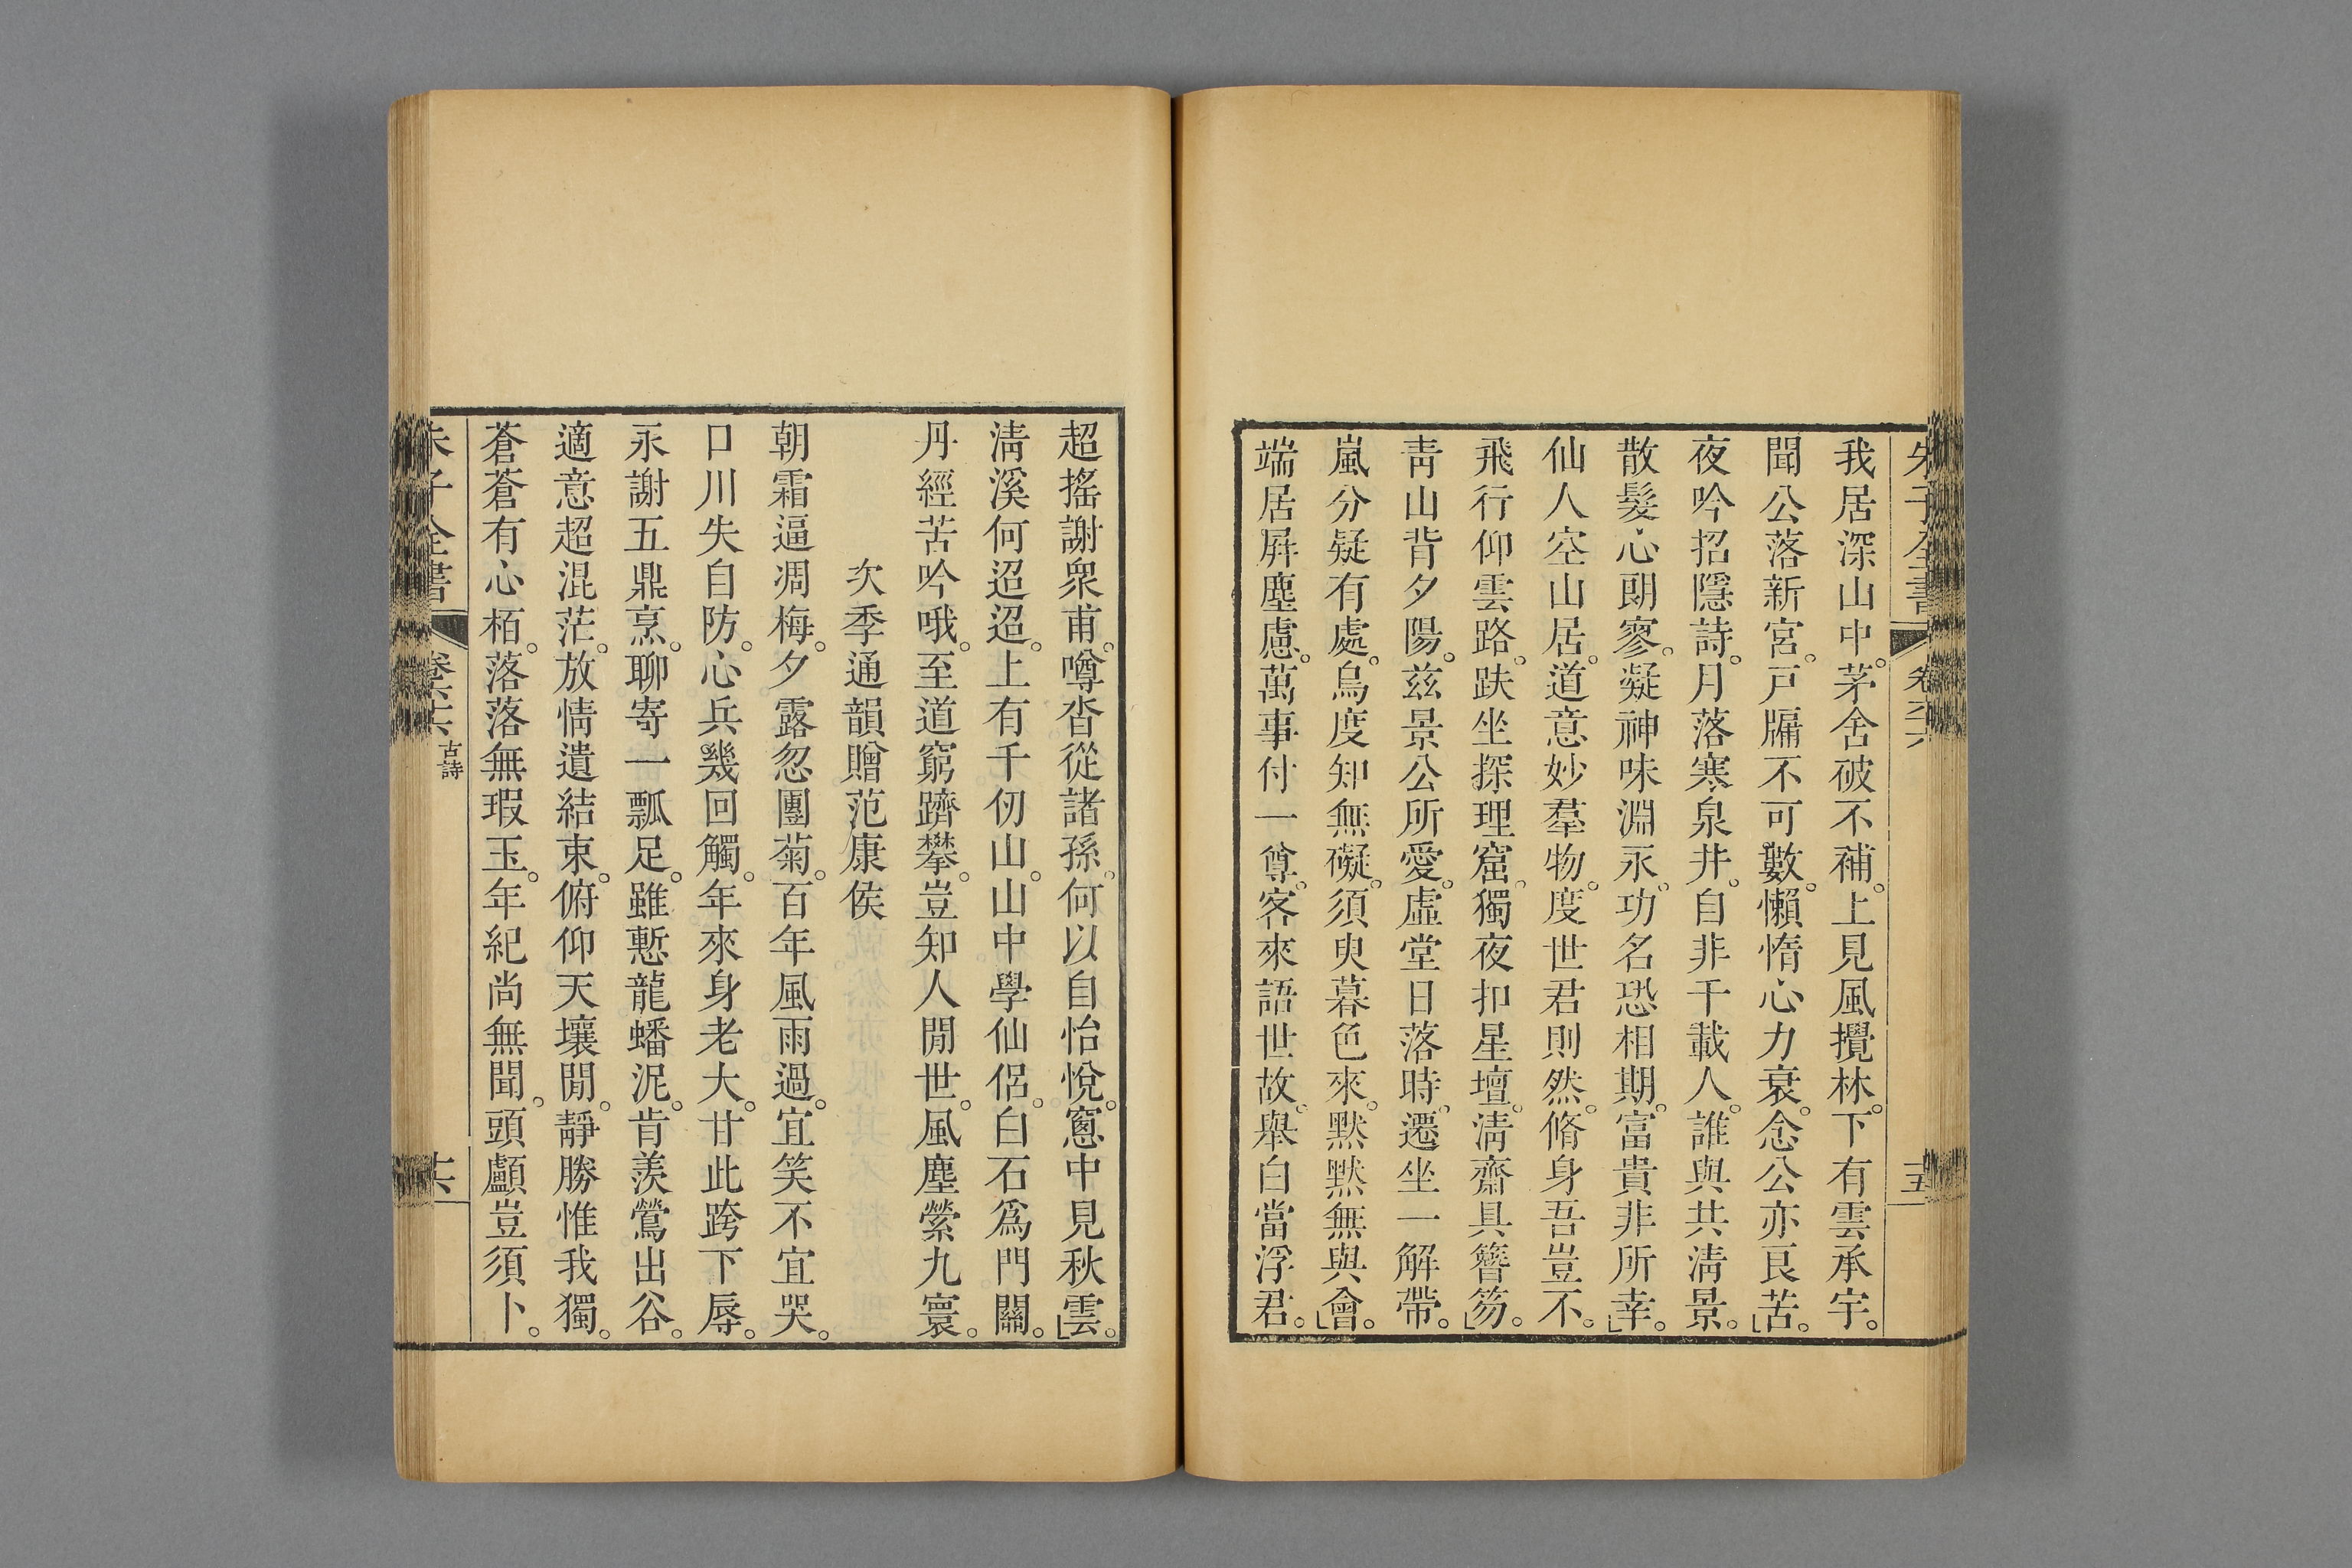 朱子全書 卷六十六 十五
我居深山中。茅舍破不補。上見風攪林。下有雲承宇。
聞公落新宮。戸牖不可數。懶惰心力衰。念公亦良苦。
夜吟招隱詩。月落寒泉井。自非千載人。誰與共淸景。
散髮心朗寥。凝神味淵永。功名恐相期。富貴非所幸。
仙人空山居。道意妙羣物。度世君則然。脩身吾豈不。
飛行仰雲路。趺坐探理窟。獨夜扣星壇。淸齋具簪笏。
靑山背夕陽。茲景公所愛。虛堂日落時。遷坐一解帶。
嵐分疑有處。鳥度知無礙。須臾暮色來。默默無與會。
端居屛塵慮。萬事付一尊。客來語世故。舉白當浮君。
超搖謝衆甫。噂沓從諸孫。何以自怡悅。窻中見秋雲。
淸溪何迢迢。上有千仞山。山中學仙侶。白石爲門關。
丹經苦吟哦。至道窮躋攀。豈知人閒世。風塵縈九寰。
次季通韻贈范康侯
朝霜逼凋梅。夕露忽團菊。百年風雨過。宜笑不宜哭。
口川失自防。心兵幾回觸。年來身老大。甘此跨下辱。
永謝五鼎烹。聊寄一瓢足。雖慙龍蟠泥。肯羨鶯出谷。
適意超混茫。放情遺結束。俯仰天壤閒。靜勝惟我獨。
蒼蒼有心栢。落落無瑕玉。年紀尚無聞。頭顱豈須卜。
朱子全書 卷六十六 古詩 十六